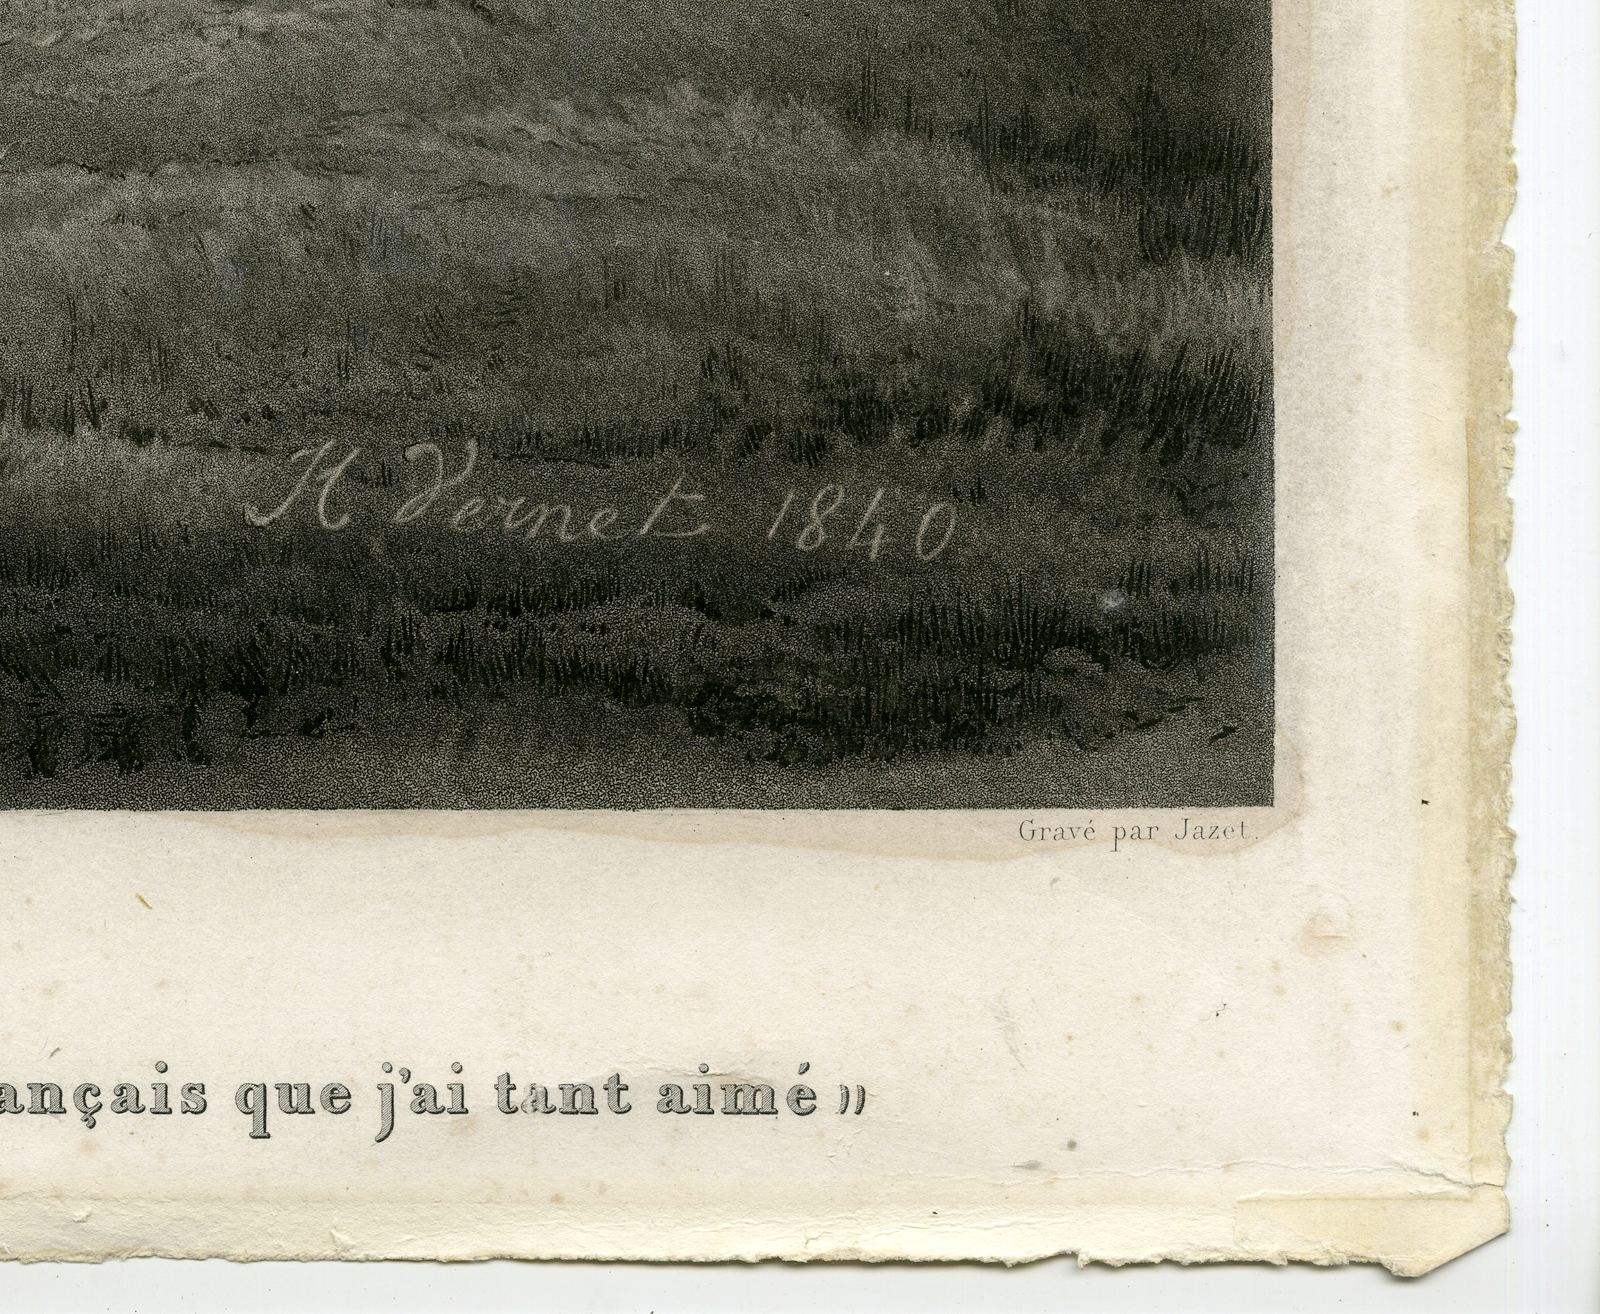 H Vernet 1840
Gravé par Jazet.
ançais que j'ai tant aimé »